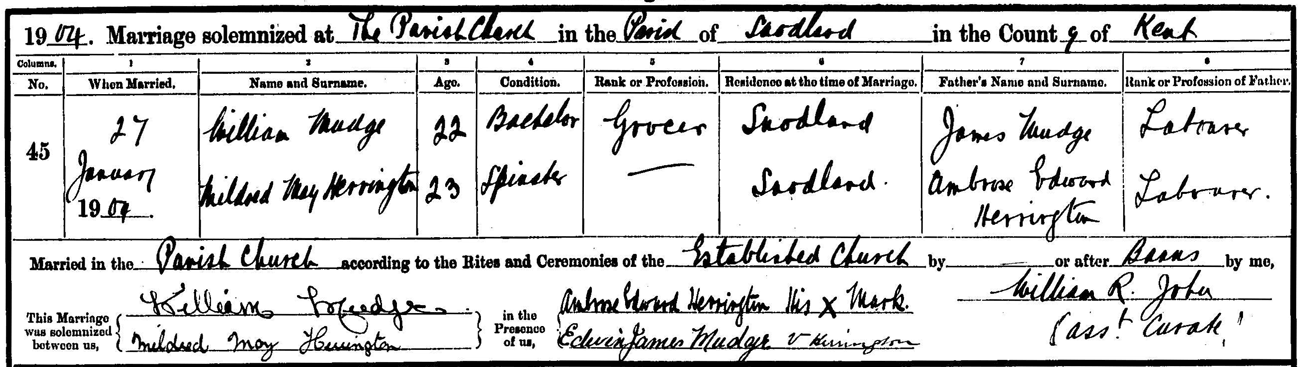 1904. Marriage solemnized at The Parish Church in the Parish of Snodland in the County of Kent
Columns. 1 2 3 4 5 6 7 8
No. When Married. Name and Surname. Age. Condition. Rank or Profession. Residence at the time of Marriage. Father's Name and Surname. Rank or Profession of Father.
45 27 January 1904. William Mudge 22 Bachelor Grocer Snodland James Mudge Labourer
Mildred May Herrington 23 Spinster — Snodland. Ambrose Edward Herrington Labourer.
Married in the Parish Church according to the Rites and Ceremonies of the Established Church by — or after Banns by me,
This Marriage was solemnized between us, William Mudge in the Presence of us, Ambrose Edward Herrington His X Mark. William R.
Mildred May Herrington Edwin James Mudge V Herrington (Asst Curate)